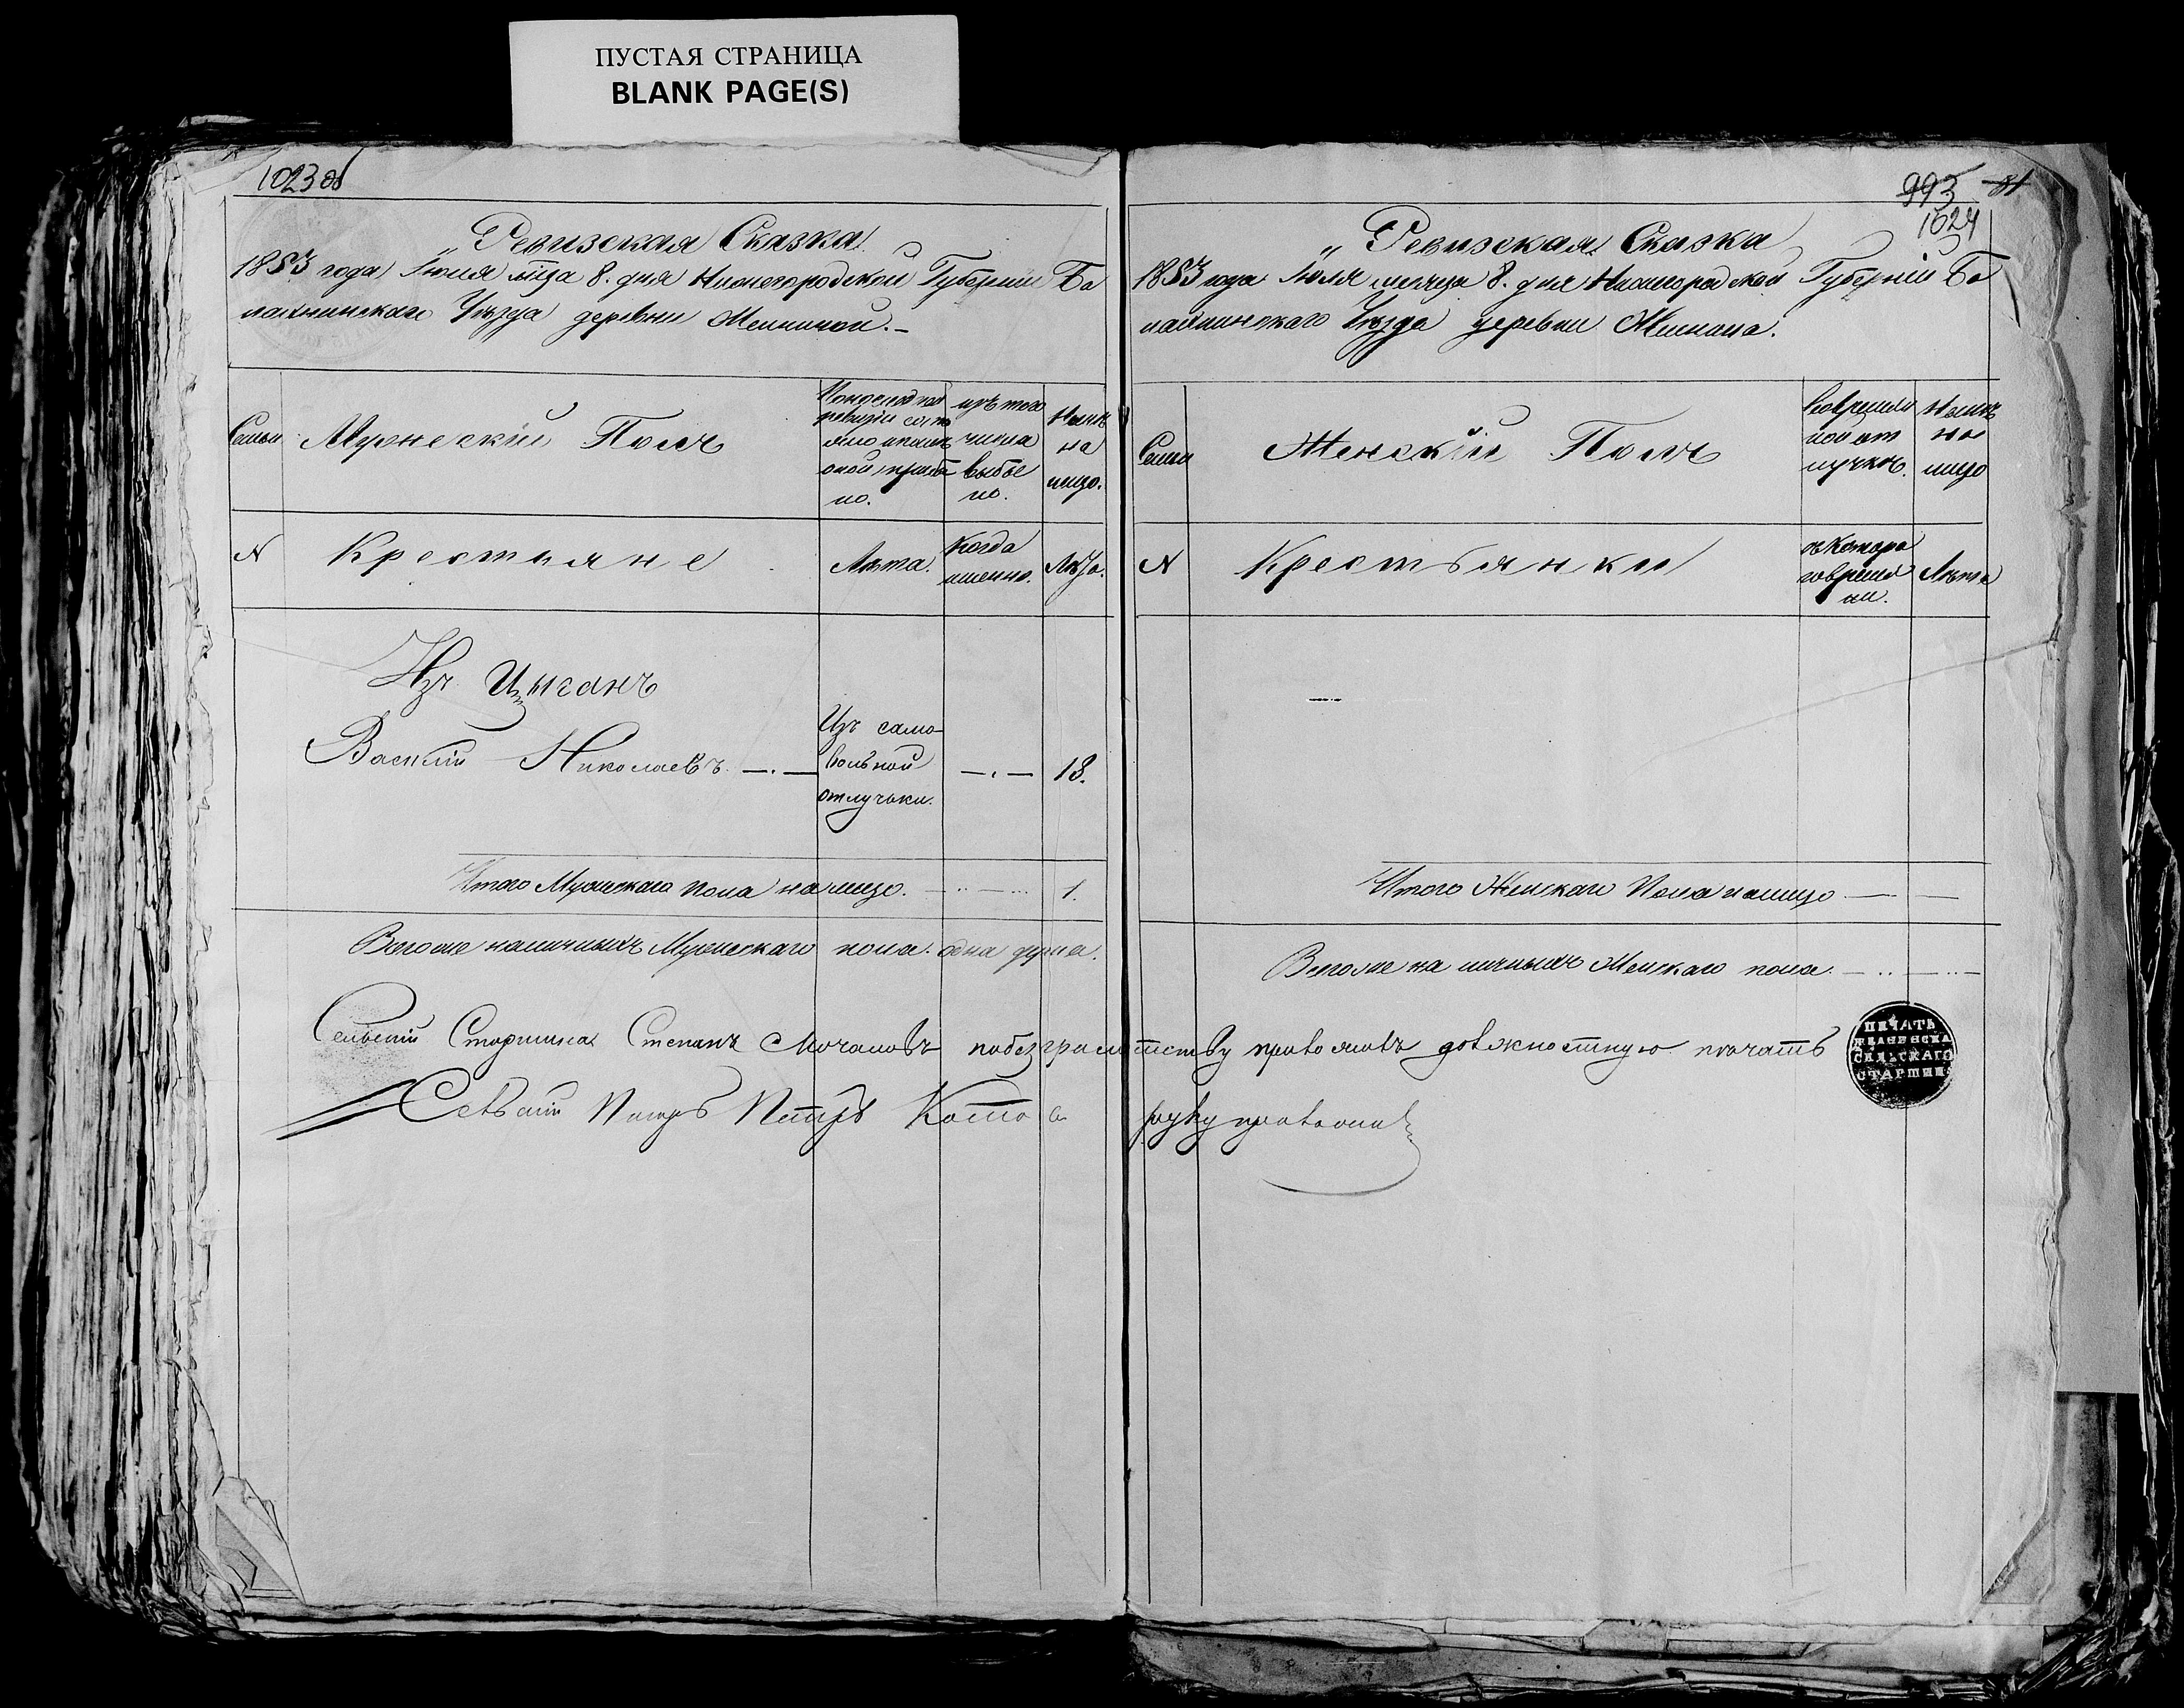 ПУСТАЯ СТРАНИЦА
BLANK PAGE(S)
1023 об
Ревизская Сказка
1853 года Июля мца 8. дня Нижегородской Губернии Ба
лахнинскаго Уѣзда деревни
Семьи
Мужескій Полъ
По последней
ревизіи состо
яло и после
оной прибы
ло.
изъ того
числа
выбы
ло.
Нынѣ
на
лицо.
N
Крестьяне
Лѣта.
Когда
именно.
Лѣта.
Изъ Цыганъ
Василій Николаевъ
Изъ само-
вольной
отлучьки.
18.
Итого Мужескаго пола на лицо. 1.
Всего же наличныхъ Мужескаго пола. одна душа.
993 81
1024
Ревизская Сказка
1853 года Июля месяца 8. дня Нижегородской Губерніи Ба
лахнинскаго Уѣзда деревни
Семьи
Женскій Полъ
Во времен
ной от
лучкѣ.
Нынѣ
на
лицо
N
Крестьянки
съ Котора
го време
ни.
Лѣта
Итого Женскаго Пола на лицо
Всего же на личныхъ Женскаго пола.
Сельский Старшина Степанъ Мочаловъ по безграмотству приложилъ должностную печать
ПЕЧАТЬ
СЕЛЬСКАГО
СТАРШИН
Сельский Писарь Петръ руку приложил